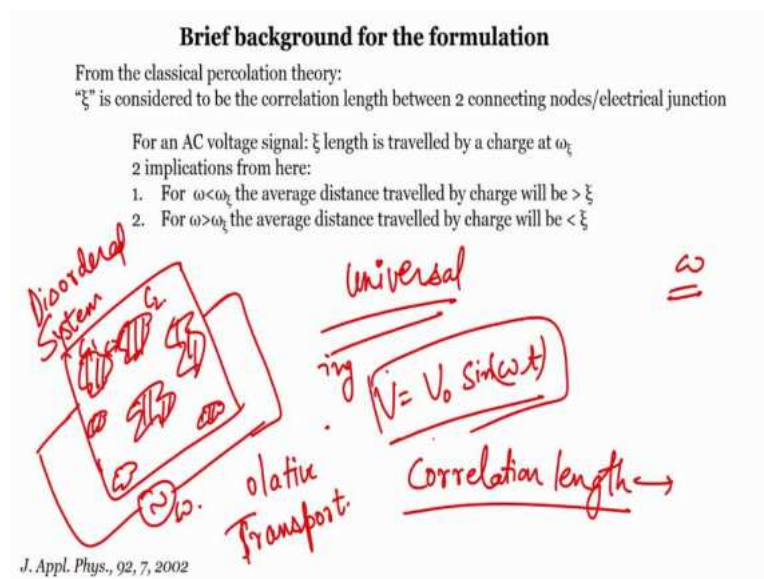 Brief background for the formulation
From the classical percolation theory:
“ξ” is considered to be the correlation length between 2 connecting nodes/electrical junction
For an AC voltage signal: ξ length is travelled by a charge at ωξ
2 implications from here:
1. For ω<ωξ the average distance travelled by charge will be > ξ
2. For ω>ωξ the average distance travelled by charge will be < ξ
Disordered
System
C2
universal
ω
ing
V = V₀ Sin(ωt)
ω.
olative
Transport.
Correlation length →
J. Appl. Phys., 92, 7, 2002